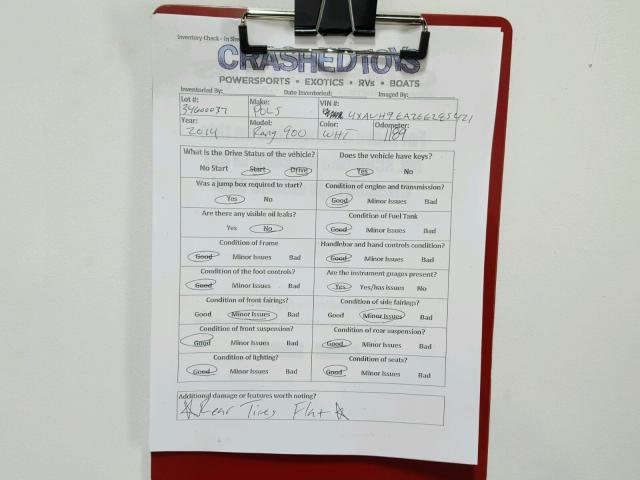 Inventory Check - In
CRASHEDTOYS
POWERSPORTS • EXOTICS • RVs • BOATS
Inventoried By: Date Inventoried: Imaged By:
Lot #: Make: VIN #:
34600037 POLS 4XAVH9EA2EE285421
Year: Model: Color: Odometer:
2014 Rang 900 WHT 1189
What is the Drive Status of the vehicle? Does the vehicle have keys?
No Start Start Drive Yes No
Was a jump box required to start? Condition of engine and transmission?
Yes No Good Minor Issues Bad
Are there any visible oil leaks? Condition of Fuel Tank
Yes No Good Minor Issues Bad
Condition of Frame Handlebar and hand controls condition?
Good Minor Issues Bad Good Minor Issues Bad
Condition of the foot controls? Are the instrument guages present?
Good Minor Issues Bad Yes Yes/has issues No
Condition of front fairings? Condition of side fairings?
Good Minor Issues Bad Good Minor Issues Bad
Condition of front suspension? Condition of rear suspension?
Good Minor Issues Bad Good Minor Issues Bad
Condition of lighting? Condition of seats?
Good Minor Issues Bad Good Minor Issues Bad
Additional damage or features worth noting?
☆ Rear Tires Flat ☆